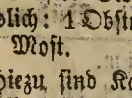 blich: 1 Obst
Most.
hiezu sind Ko